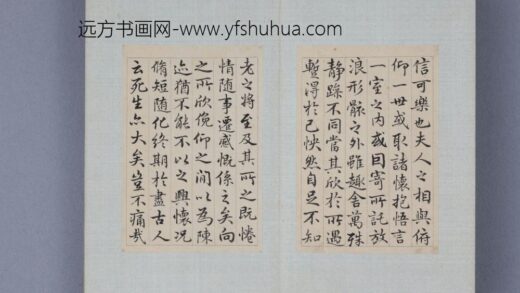 远方书画网-www.yfshuhua.com
信可樂也夫人之相與俯
仰一世或取諸懷抱悟言
一室之内或因寄所託放
浪形骸之外雖趣舍萬殊
静躁不同當其欣於所遇
暫得於己怏然自足不知
老之將至及其所之既惓
情隨事遷感慨係之矣向
之所欣俛仰之間以為陳
迹猶不能不以之興懷況
脩短隨化終期於盡古人
云死生亦大矣豈不痛哉